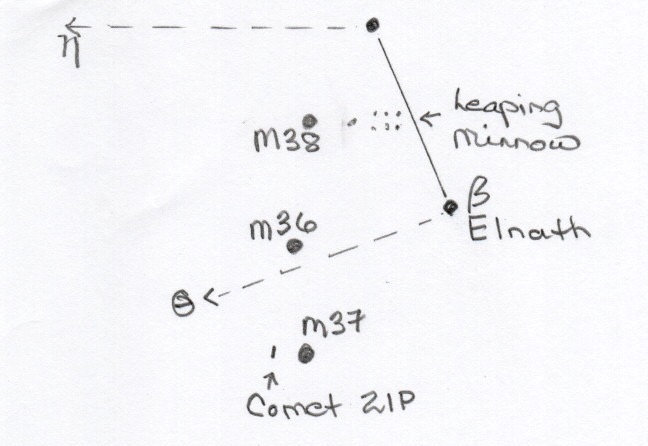 η
M38
Leaping
Minnow
β
Elnath
M36
θ
M37
Comet 21P